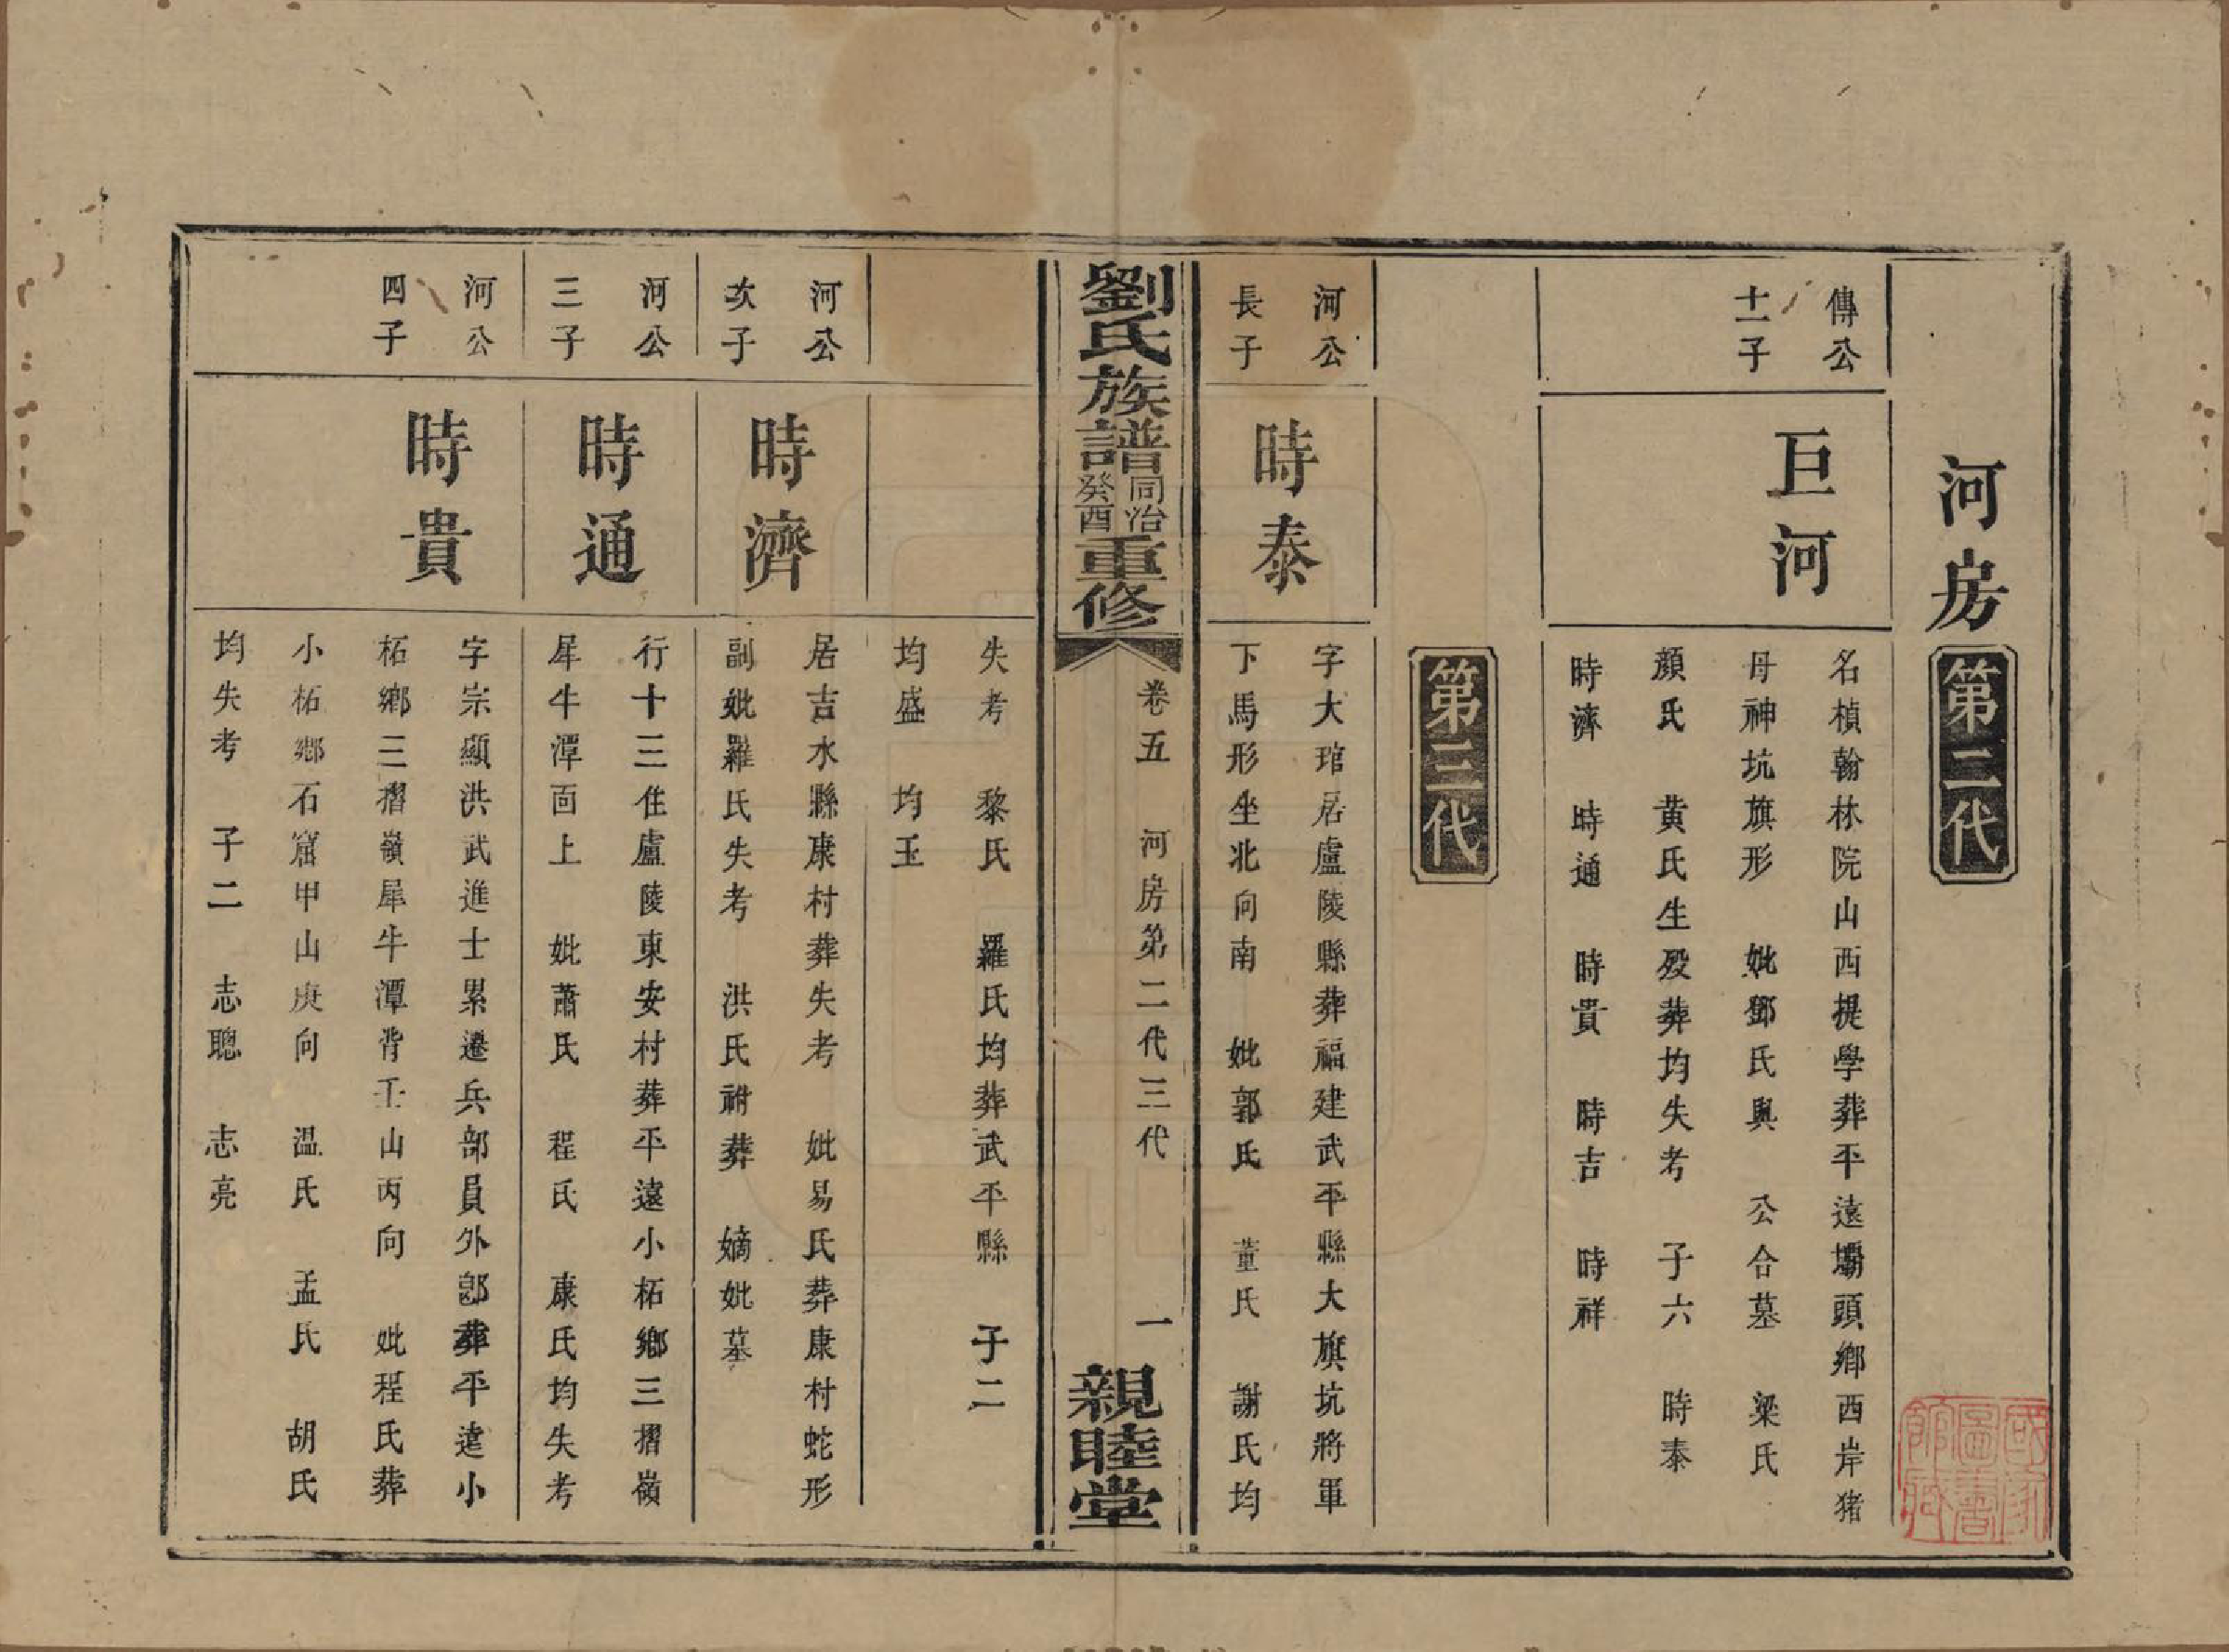 河房
第二代
傳公
十一子
巨河
名楨翰林院山西提學葬平遠壩頭鄉西岸猪
母神坑旗形 妣鄧氏與 公合墓 梁氏
顏氏 黄氏生殁葬均失考 子六 時泰
時濟 時通 時貴 時吉 時祥
第三代
河公
長子
時泰
字大琯居盧陵縣葬福建武平縣大旗坑將軍
下馬形坐北向南 妣郭氏 董氏 謝氏均
劉氏族譜同治癸酉重修
卷五 河房第二代三代 一
親睦堂
失考 黎氏 羅氏均葬武平縣 子二
均盛 均玉
河公
次子
時濟
居吉水縣康村葬失考 妣易氏葬康村蛇形
副妣羅氏失考 洪氏祔葬 嫡妣墓
河公
三子
時通
行十三住盧陵東安村葬平遠小柘鄉三摺嶺
犀牛潭面上 妣蕭氏 程氏 康氏均失考
河公
四子
時貴
字宗顯洪武進士累遷兵部員外郎葬平遠小
柘鄉三摺嶺犀牛潭背壬山丙向 妣程氏葬
小柘鄉石窟甲山庚向 温氏 孟氏 胡氏
均失考 子二 志聰 志亮
國家圖書館藏